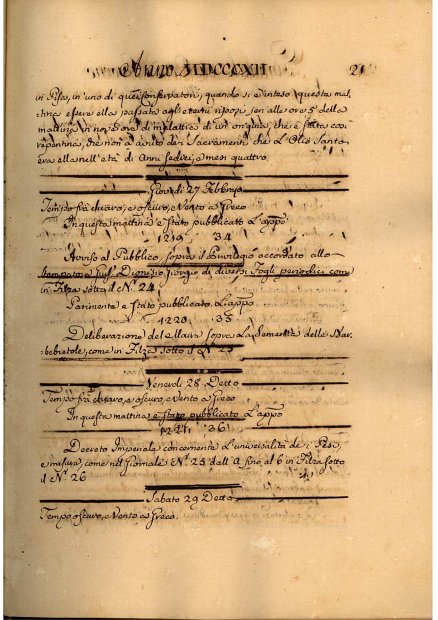 Anno MDCCCXII 21
in Pisa, in uno di quei Conservatorj, quando si è inteso questa mat-
tina essere ella passata agli eterni riposi jeri alle ore 5 della
mattina in nona ora di malattia di un' angina, che è stata così
repentina, che non à avuto de' Sacramenti che l'Olio Santo
era ella nell' età di Anni sedici, e mesi quattro.
Giovedi 27 Febbrajo
Tempo frà chiaro, e oscuro, e Vento a Greco
In questa mattina è stato pubblicato L'app.o
1219 34
Avviso al Pubblico, sopra il Privilegio accordato allo
Stampatore Sig.r Dionisio Giorgi di diversi Fogli periodici come
in Filza sotto il N.o 24
Parimente è stato pubblicato L'app.o
1220 35
Deliberazione del Maire sopra La Sementa delle Bar-
bebietole, come in Filza sotto il N.o 25
Venerdi 28 Detto
Tempo frà chiaro, e oscuro, e Vento a Greco
In questa mattina è stato pubblicato L'app.o
1221 36
Decreto Imperiale concernente L'universalità de' Pesi,
e misure, come nel Giornale N.o 25 dall' A fino al 6 in Filza sotto
il N.o 26
Sabato 29 Detto
Tempo oscuro, e Vento a Greco.